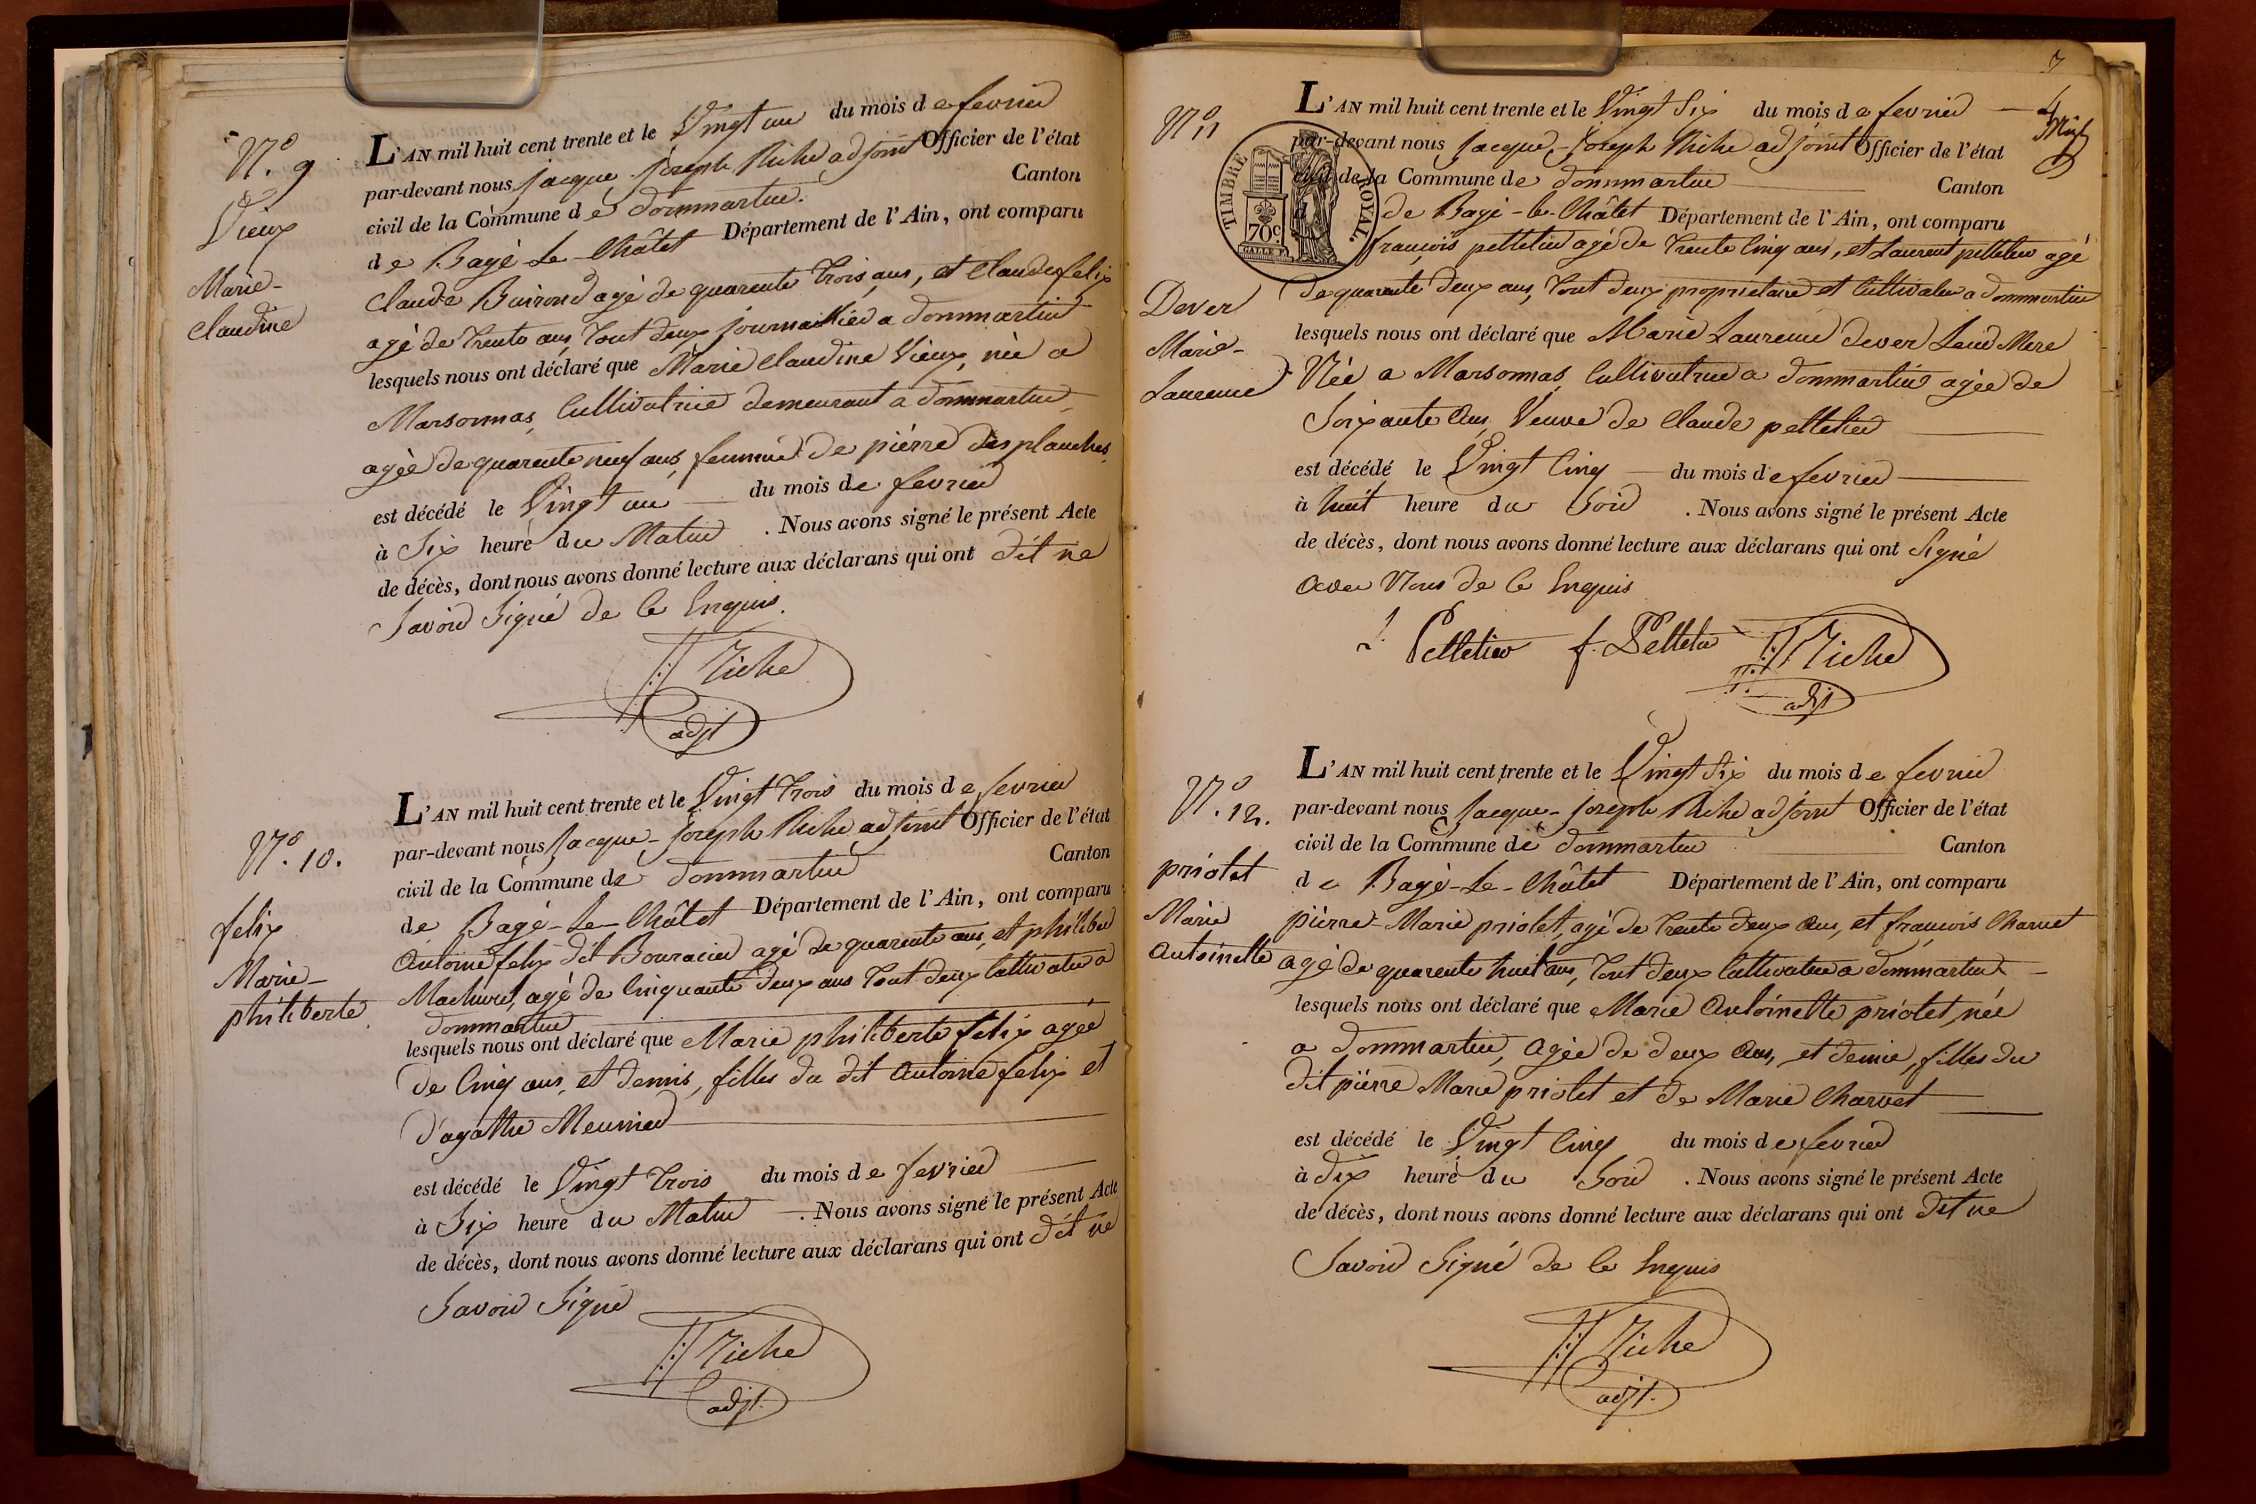 N.º 9
Vieux
Marie-
Claudine
L'AN mil huit cent trente et le Vingt un du mois de fevrier
par-devant nous Jacque Joseph Riche adjoint Officier de l'état
civil de la Commune de dommartin. Canton
de Bagé-Le-Châtel Département de l'Ain, ont comparu
Claude Buirond agé de quarente trois ans, et Claude felix
agé de trente ans, tout deux journallier a dommartin
lesquels nous ont déclaré que Marie Claudine Vieux, née a
Marsonnas, Cultivatrice demeurant a dommartin,
agée de quarente neuf ans, femme de pierre desplanches
est décédé le Vingt un du mois de fevrier
à Six heure du Matin . Nous avons signé le présent Acte
de décès, dont nous avons donné lecture aux déclarans qui ont dit ne
Savoir Signé de ce Enquis.
Riche
adjt
N.º 10.
felix
Marie-
philiberte
L'AN mil huit cent trente et le Vingt trois du mois de fevrier
par-devant nous Jacque-Joseph Riche adjoint Officier de l'état
civil de la Commune de dommartin Canton
de Bagé-Le-Châtel Département de l'Ain, ont comparu
Antoine felix dit Bouracier agé de quarente ans, et philiber
Machurel, agé de Cinquante deux ans tout deux Cultivateur a
dommartin
lesquels nous ont déclaré que Marie philiberte felix agée
de Cinq ans, et demis, filles du dit Antoine felix et
d'agathe Meunier
est décédé le Vingt trois du mois de fevrier
à Six heure du Matin . Nous avons signé le présent Acte
de décès, dont nous avons donné lecture aux déclarans qui ont dit ne
Savoir Signé
Riche
adjt.
7
Nº 11
Dever
Marie-
Laurence
TIMBRE ROYAL.
70c
L'AN mil huit cent trente et le Vingt Six du mois de fevrier
par-devant nous Jacque-Joseph Riche adjoint Officier de l'état
civil de la Commune de dommartin Canton
d de Bagé-le-Châtel Département de l'Ain, ont comparu
françois pelletier agé de trente Cinq ans, et Laurent pelletier agé
de quarente deux ans, tout deux proprietaire et Cultivateur a dommartin
lesquels nous ont déclaré que Marie Laurence dever Leur Mere
Née a Marsonnas, Cultivatrice a dommartin agée de
Soixante Ans, Veuve de Claude pelletier
est décédé le Vingt Cinq du mois de fevrier
à huit heure du Soir . Nous avons signé le présent Acte
de décès, dont nous avons donné lecture aux déclarans qui ont Signé
avec Nous de ce Enquis
L. Pelletier f. Pelletier Riche
adjt
N.º 12.
priolet
Marie
Antoinette
L'AN mil huit cent trente et le Vingt Six du mois de fevrier
par-devant nous Jacque-Joseph Riche adjoint Officier de l'état
civil de la Commune de dommartin Canton
de Bagé-Le-Châtel Département de l'Ain, ont comparu
pierre-Marie priolet, agé de trente deux Ans, et françois Charvet
agé de quarente huit ans, tout deux Cultivateur a dommartin
lesquels nous ont déclaré que Marie Antoinette priolet, née
a dommartin, agée de deux Ans, et demie, filles du
dit pierre Marie priolet et de Marie Charvet
est décédé le Vingt Cinq du mois de fevrier
à dix heure du Soir . Nous avons signé le présent Acte
de décès, dont nous avons donné lecture aux déclarans qui ont dit ne
Savoir Signé de ce Enquis
Riche
adjt.